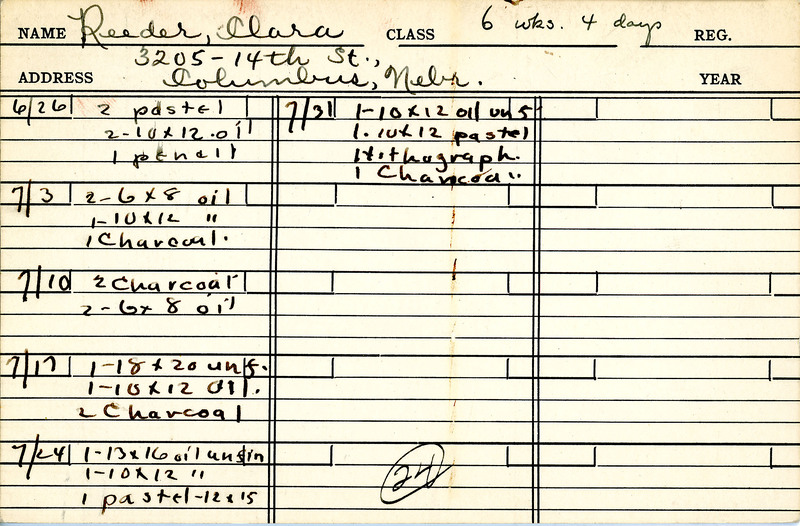 NAME Reeder, Clara CLASS 6 wks. 4 days REG.
3205-14th St.,
ADDRESS Columbus, Nebr. YEAR
6/26 2 pastel
2-10x12.oil
1 pencil
7/3 2-6x8 oil
1-10x12 "
1 Charcoal.
7/10 2 Charcoal
2-6x8 oil
7/17 1-18x20 unf.
1-10x12 Oil.
2 Charcoal
7/24 1-13x16 oil unfin
1-10x12 "
1 pastel-12x15
7/31 1-10x12 oil unf
1.10x12 pastel
1 lithograph.
1 Charcoal
24